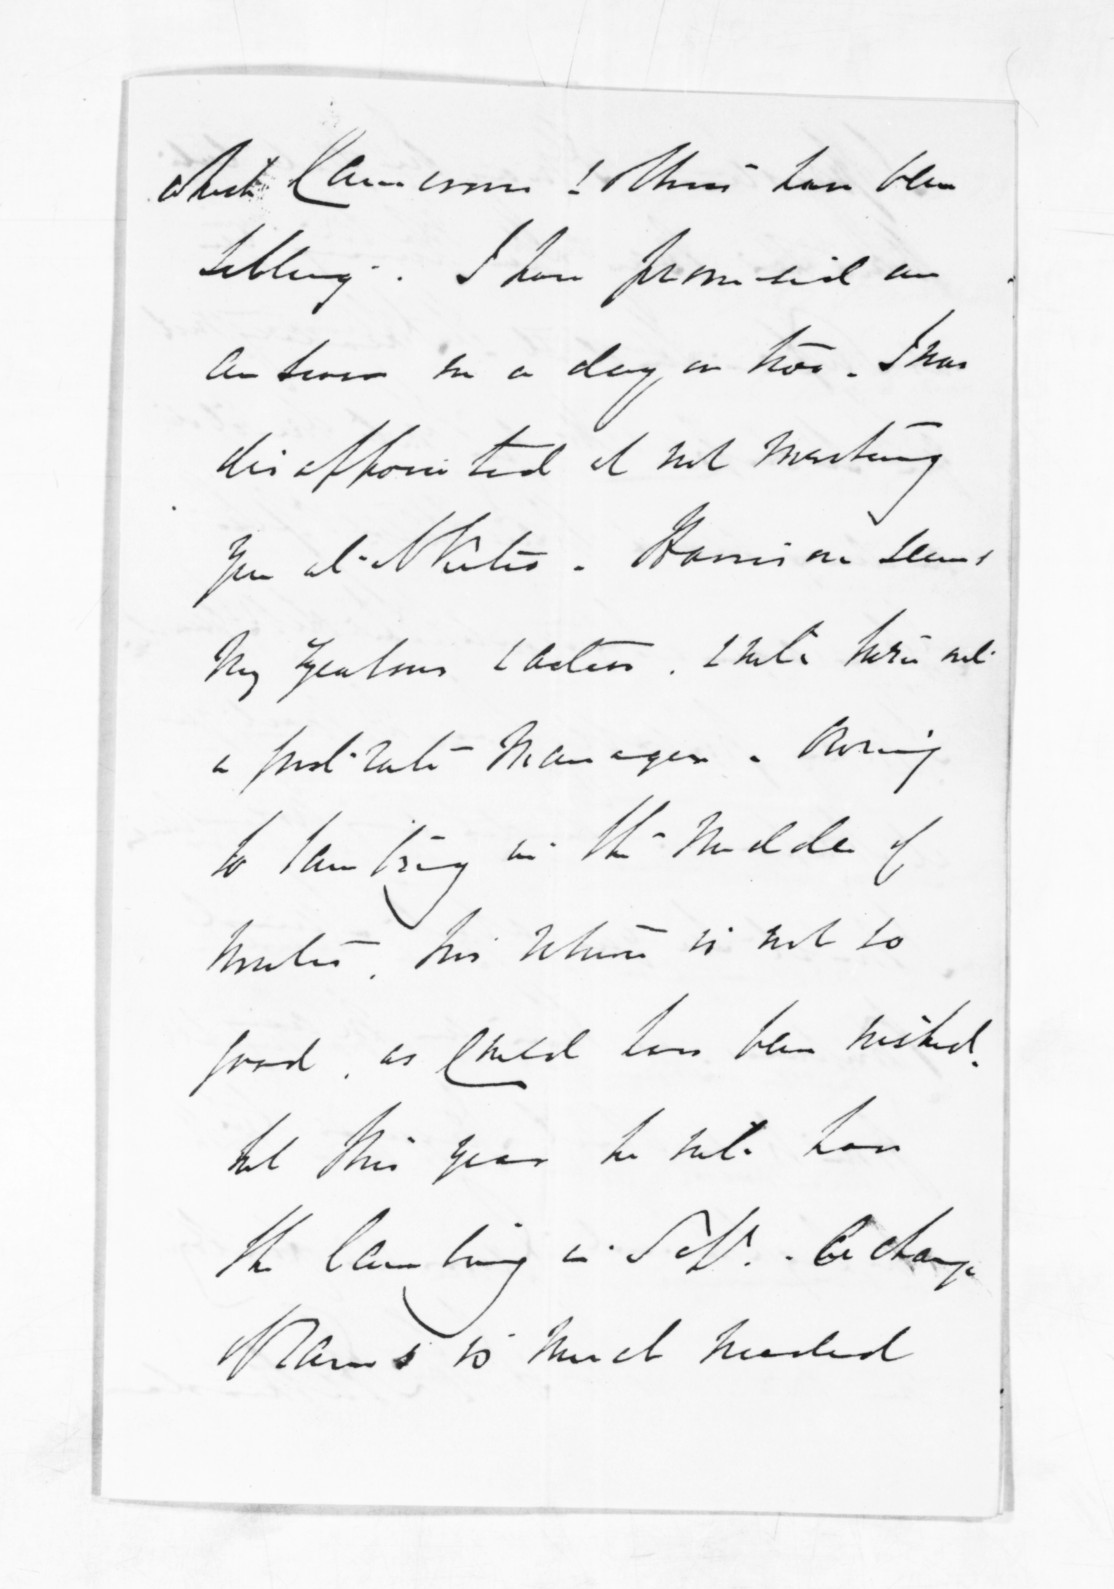 which Cameron & others have been
selling. I have promised an
answer in a day or two. I was
disappointed at not meeting
you at
Harrison seems
very zealous & active, & will turn out
a first rate Manager. Owing
to lambing in the middle of
winter, his return is not so
good, as could have been wished,
but this year he will have
the lambing in Sept. A change
of Rams is much needed